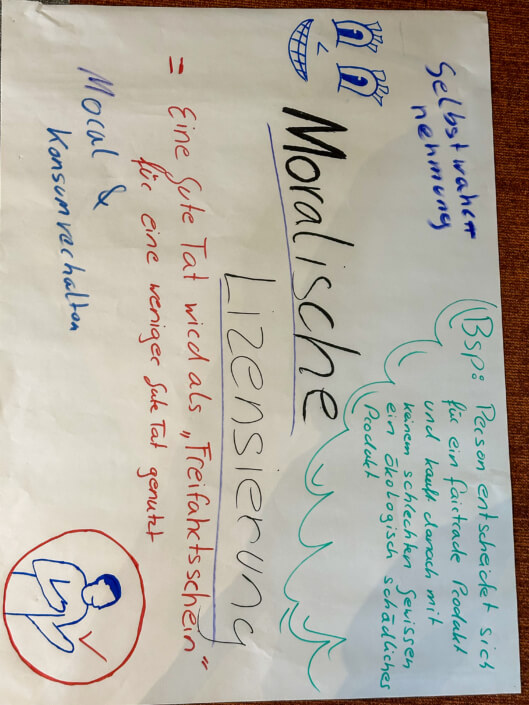 Selbstwahrnehmung
Bsp: Person entscheidet sich
für ein fairtrade Produkt
und kauft danach mit
keinem schlechten Gewissen
ein ökologisch schädliches
Produkt
Moralische
Lizensierung
= Eine gute Tat wird als „Freifahrtsschein"
für eine weniger gute Tat genutzt
Moral &
Konsumverhalten